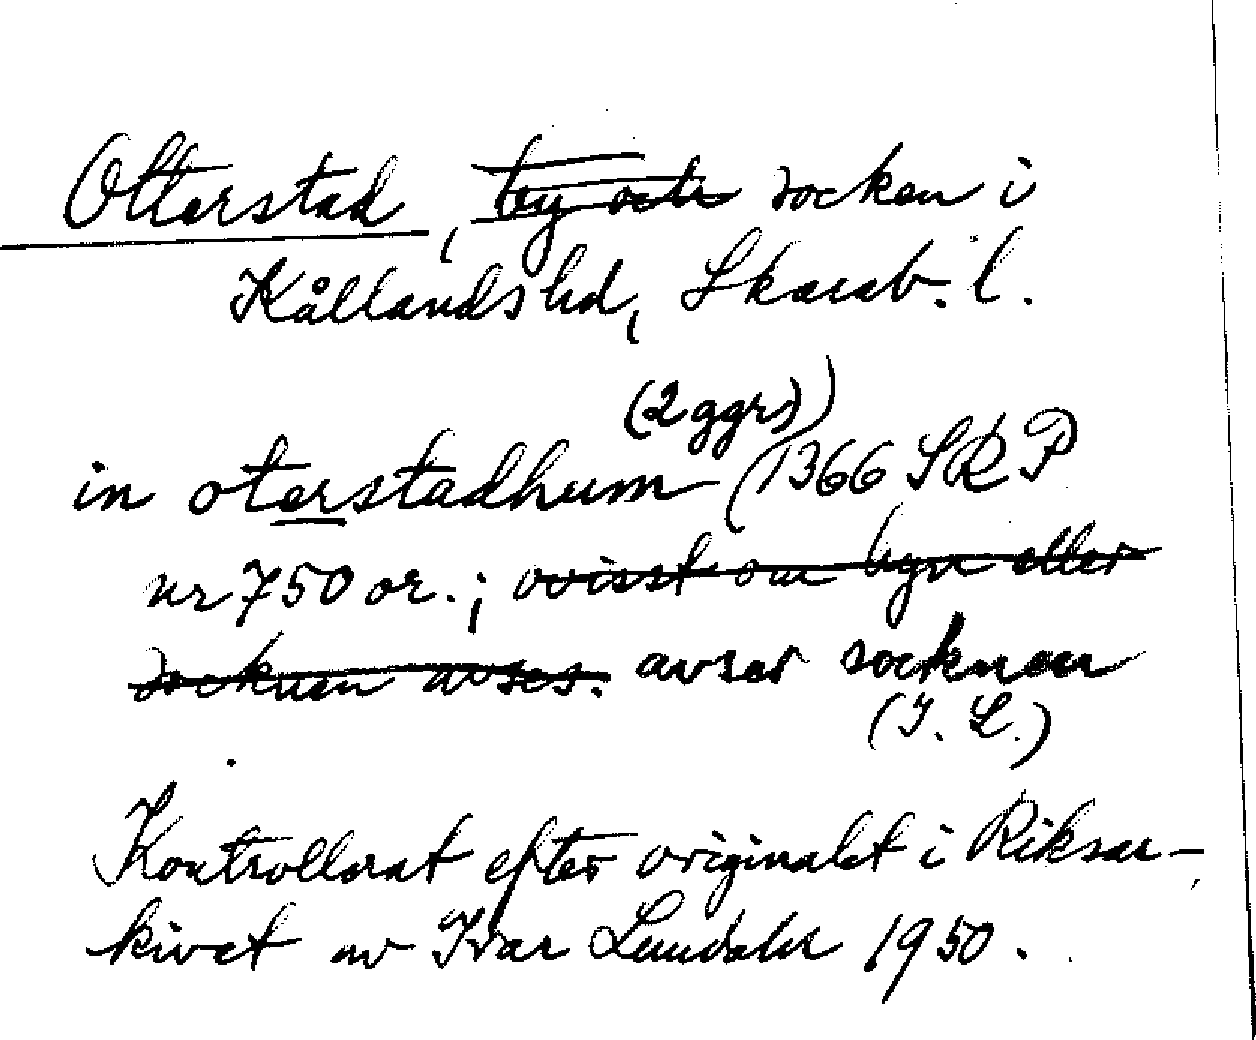 Otterstad, by och socken i
Kållands hd, Skarab. l.
(2 ggr))
in oterstadhum (1366 SRP
nr 750 or.; ovisst om byn eller
socknen avses. avser socknen
(I. L.)
Kontrollerat efter originalet i Riksar-
kivet av Ivar Lundahl 1950.